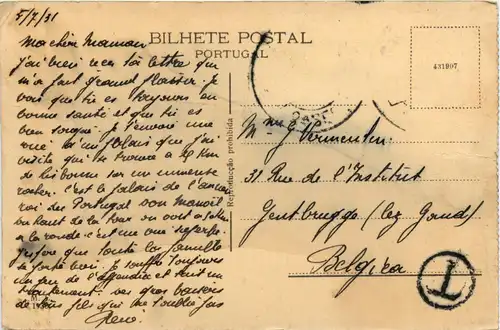 5/7/31
BILHETE POSTAL
PORTUGAL
431997
Reproducção prohibida
Ma chère Maman
J'ai bien reçu ta lettre qui
m'a fait grand plaisir. Je
vois que tu es toujours en
bonne santé et que tu es
bien soignée. Je t'envoie une
vue d'un palais que j'ai
visité qui se trouve a 28 Km
de Lisbonne sur un immense
rocher. C'est le palais de l'ancien
roi des Portugal Don Manoël
du haut de la tour on voit
a la ronde c'est une vue superbe.
J'espère que toute la famille
se porte bien. Je souffre toujours
un peu de l'appendice et suit un
traitement. Des gros baisers
de ton fils qui ne t'oublie pas
René
Mme G. Vermeulen
31 Rue de l'Institut
Gentbrugge (lez Gand)
Belgica
T